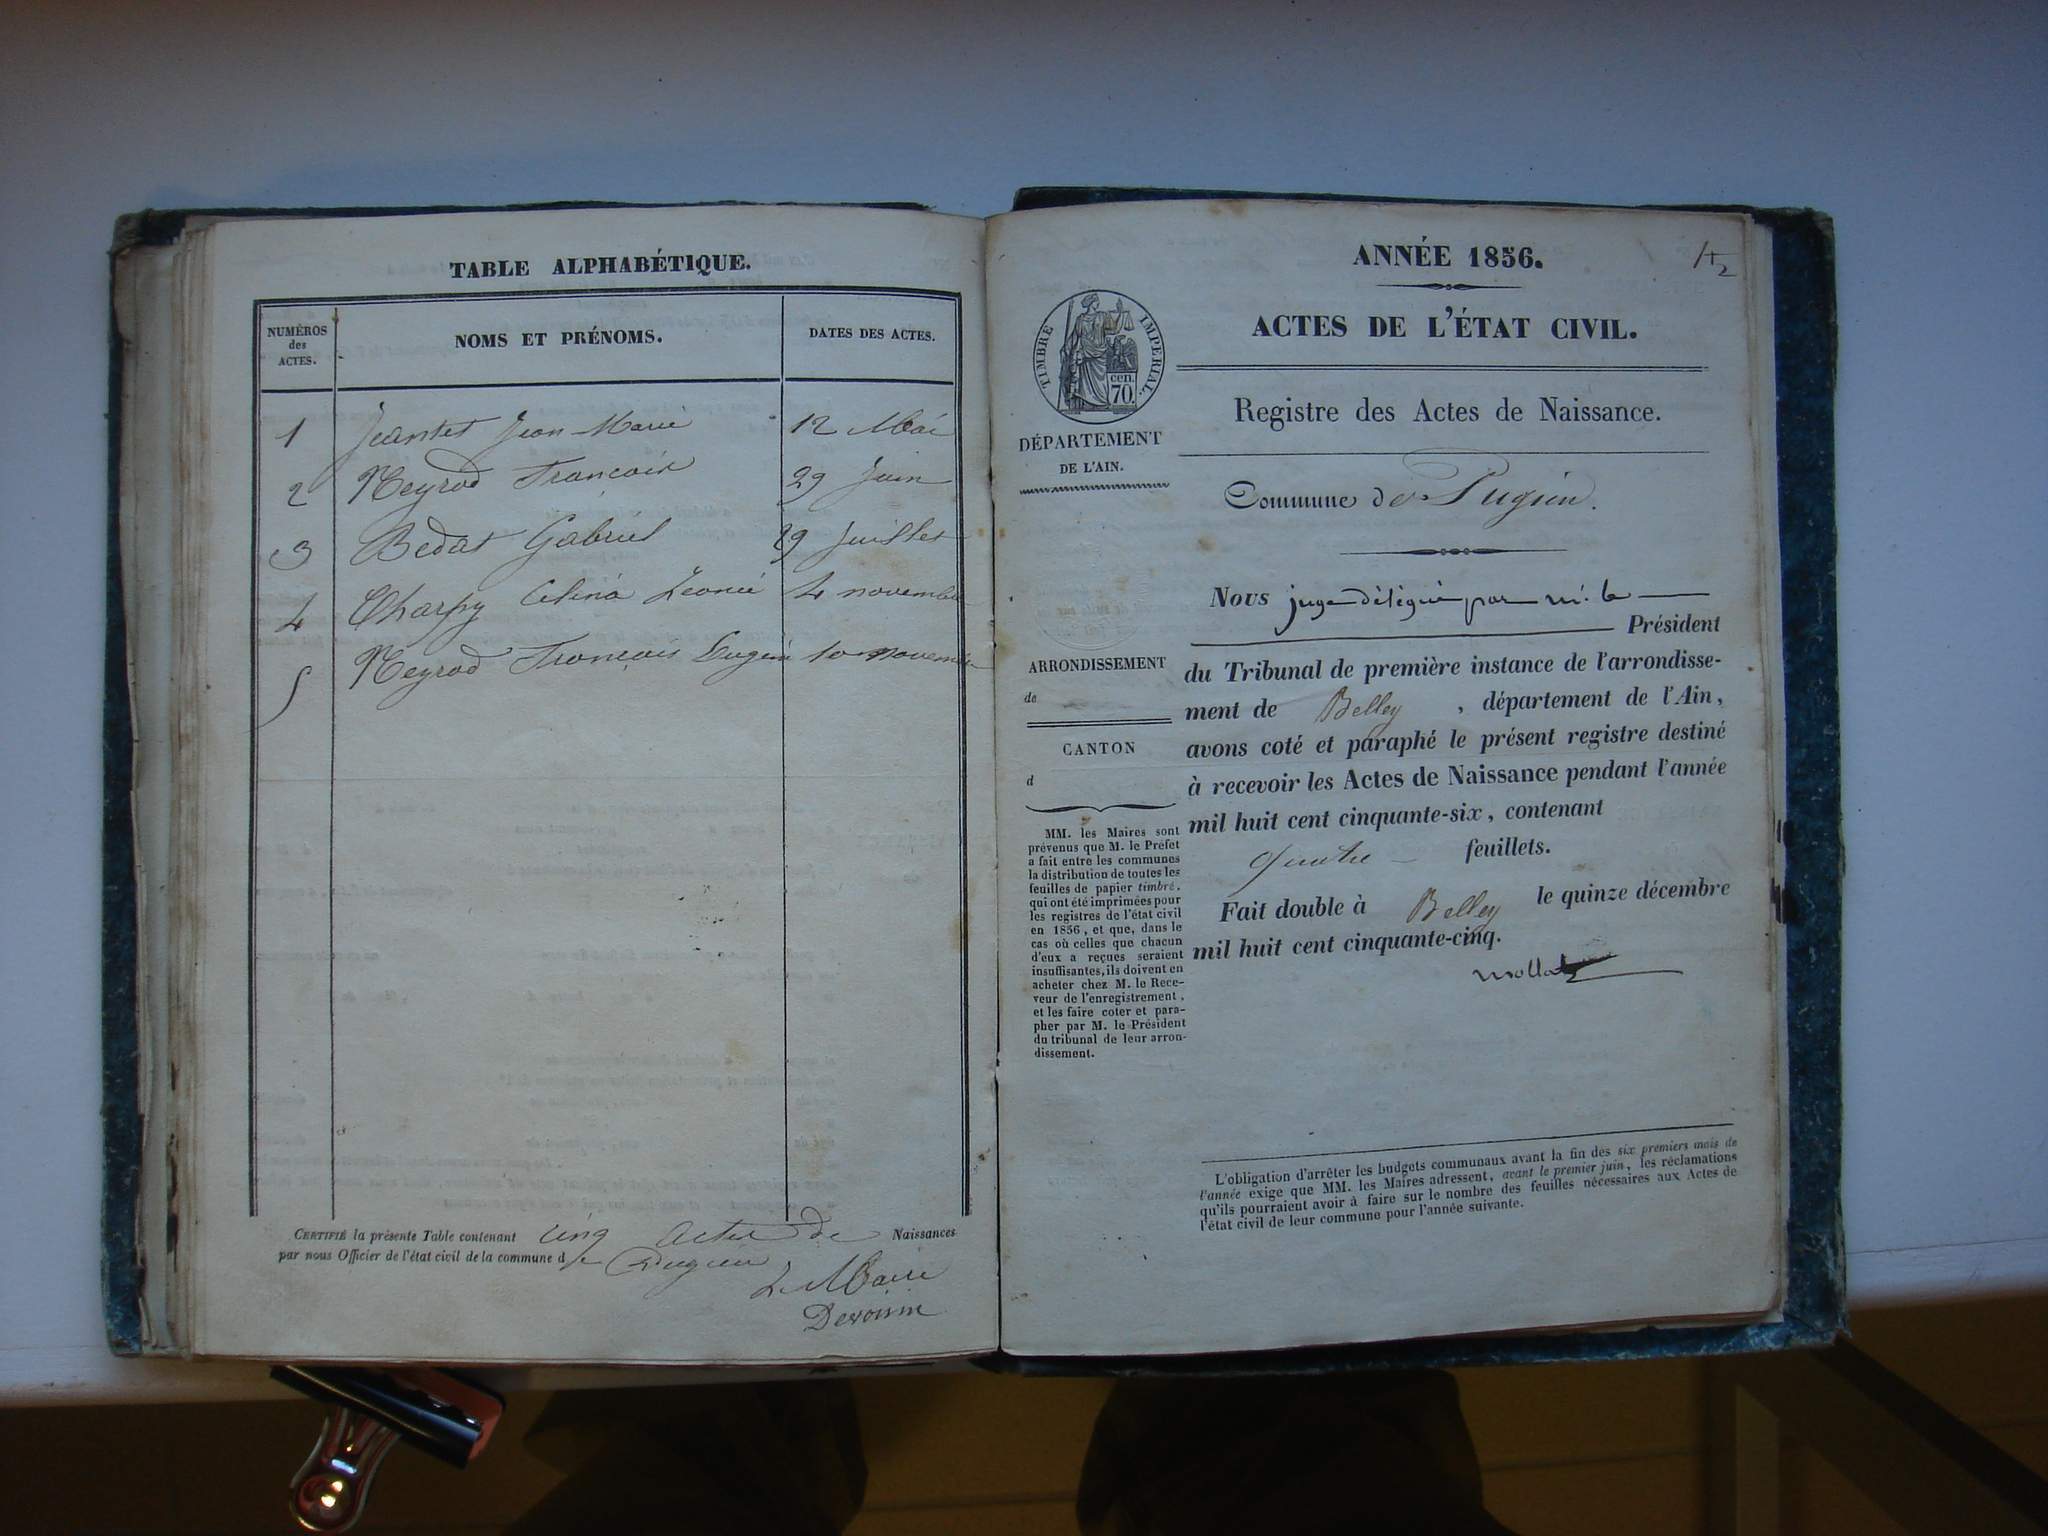 TABLE ALPHABÉTIQUE.
NUMÉROS des ACTES. NOMS ET PRÉNOMS. DATES DES ACTES.
1 Jeantet Jean-Marie 12 Mai
2 Neyrod Francois 29 Juin
3 Bedat Gabriel 29 Juillet
4 Charpy Celina Leonie 4 novembre
5 Neyrod Francois Eugène 10 novembre
CERTIFIÉ la présente Table contenant cinq actes de Naissances
par nous Officier de l'état civil de la commune de Pugieu
Le Maire
Devoisin
ANNÉE 1856.
ACTES DE L'ÉTAT CIVIL.
TIMBRE IMPERIAL.
cen.
70.
Registre des Actes de Naissance.
DÉPARTEMENT
DE L'AIN.
Commune de Pugieu.
Nous juge délégué par m. le
Président
du Tribunal de première instance de l'arrondisse-
ment de Belley, département de l'Ain,
avons coté et paraphé le présent registre destiné
à recevoir les Actes de Naissance pendant l'année
mil huit cent cinquante-six, contenant
quatre feuillets.
Fait double à Belley le quinze décembre
mil huit cent cinquante-cinq.
ARRONDISSEMENT
de
CANTON
d
MM. les Maires sont
prévenus que M. le Préfet
a fait entre les communes
la distribution de toutes les
feuilles de papier timbré,
qui ont été imprimées pour
les registres de l'état civil
en 1856, et que, dans le
cas où celles que chacun
d'eux a reçues seraient
insuffisantes, ils doivent en
acheter chez M. le Rece-
veur de l'enregistrement,
et les faire coter et para-
pher par M. le Président
du tribunal de leur arron-
dissement.
L'obligation d'arrêter les budgets communaux avant la fin des six premiers mois de
l'année exige que MM. les Maires adressent, avant le premier juin, les réclamations
qu'ils pourraient avoir à faire sur le nombre des feuilles nécessaires aux Actes de
l'état civil de leur commune pour l'année suivante.